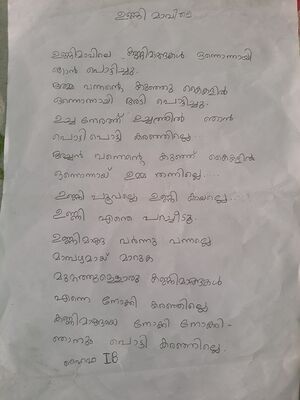 ഉണ്ണി മാവിലെ
ഉണ്ണിമാവിലെ കണ്ണിമാങ്ങകൾ ഒന്നൊന്നായി
ഞാൻ പൊട്ടിച്ചു.
അമ്മ വന്നെന്റെ കുഞ്ഞു കൈകളിൽ
ഒന്നൊന്നായി അടി പൊട്ടിച്ചു.
ഉച്ച നേരത്ത് ഉച്ചത്തിൽ ഞാൻ
പൊട്ടി പൊട്ടി കരഞ്ഞില്ലെ...
അച്ഛൻ വന്നെന്റെ കുഞ്ഞ് കൈകളിൽ
ഒന്നൊന്നായ് ഉമ്മ തന്നില്ലെ....
ഉണ്ണി പൂവല്ലെ ഉണ്ണി കായല്ലെ....
ഉണ്ണി എന്തെ
ഉണ്ണിമാങ്ങ വർന്നു വന്നല്ലെ
മാമ്പഴമായ് മാറുക
മുറ്റത്തുള്ളൊരു കണ്ണിമാങ്ങകൾ
എന്നെ നോക്കി കരഞ്ഞില്ലെ
കണ്ണിമാങ്ങയെ നോക്കി നോക്കി-
ഞാനും പൊട്ടി കരഞ്ഞില്ലെ.
IB